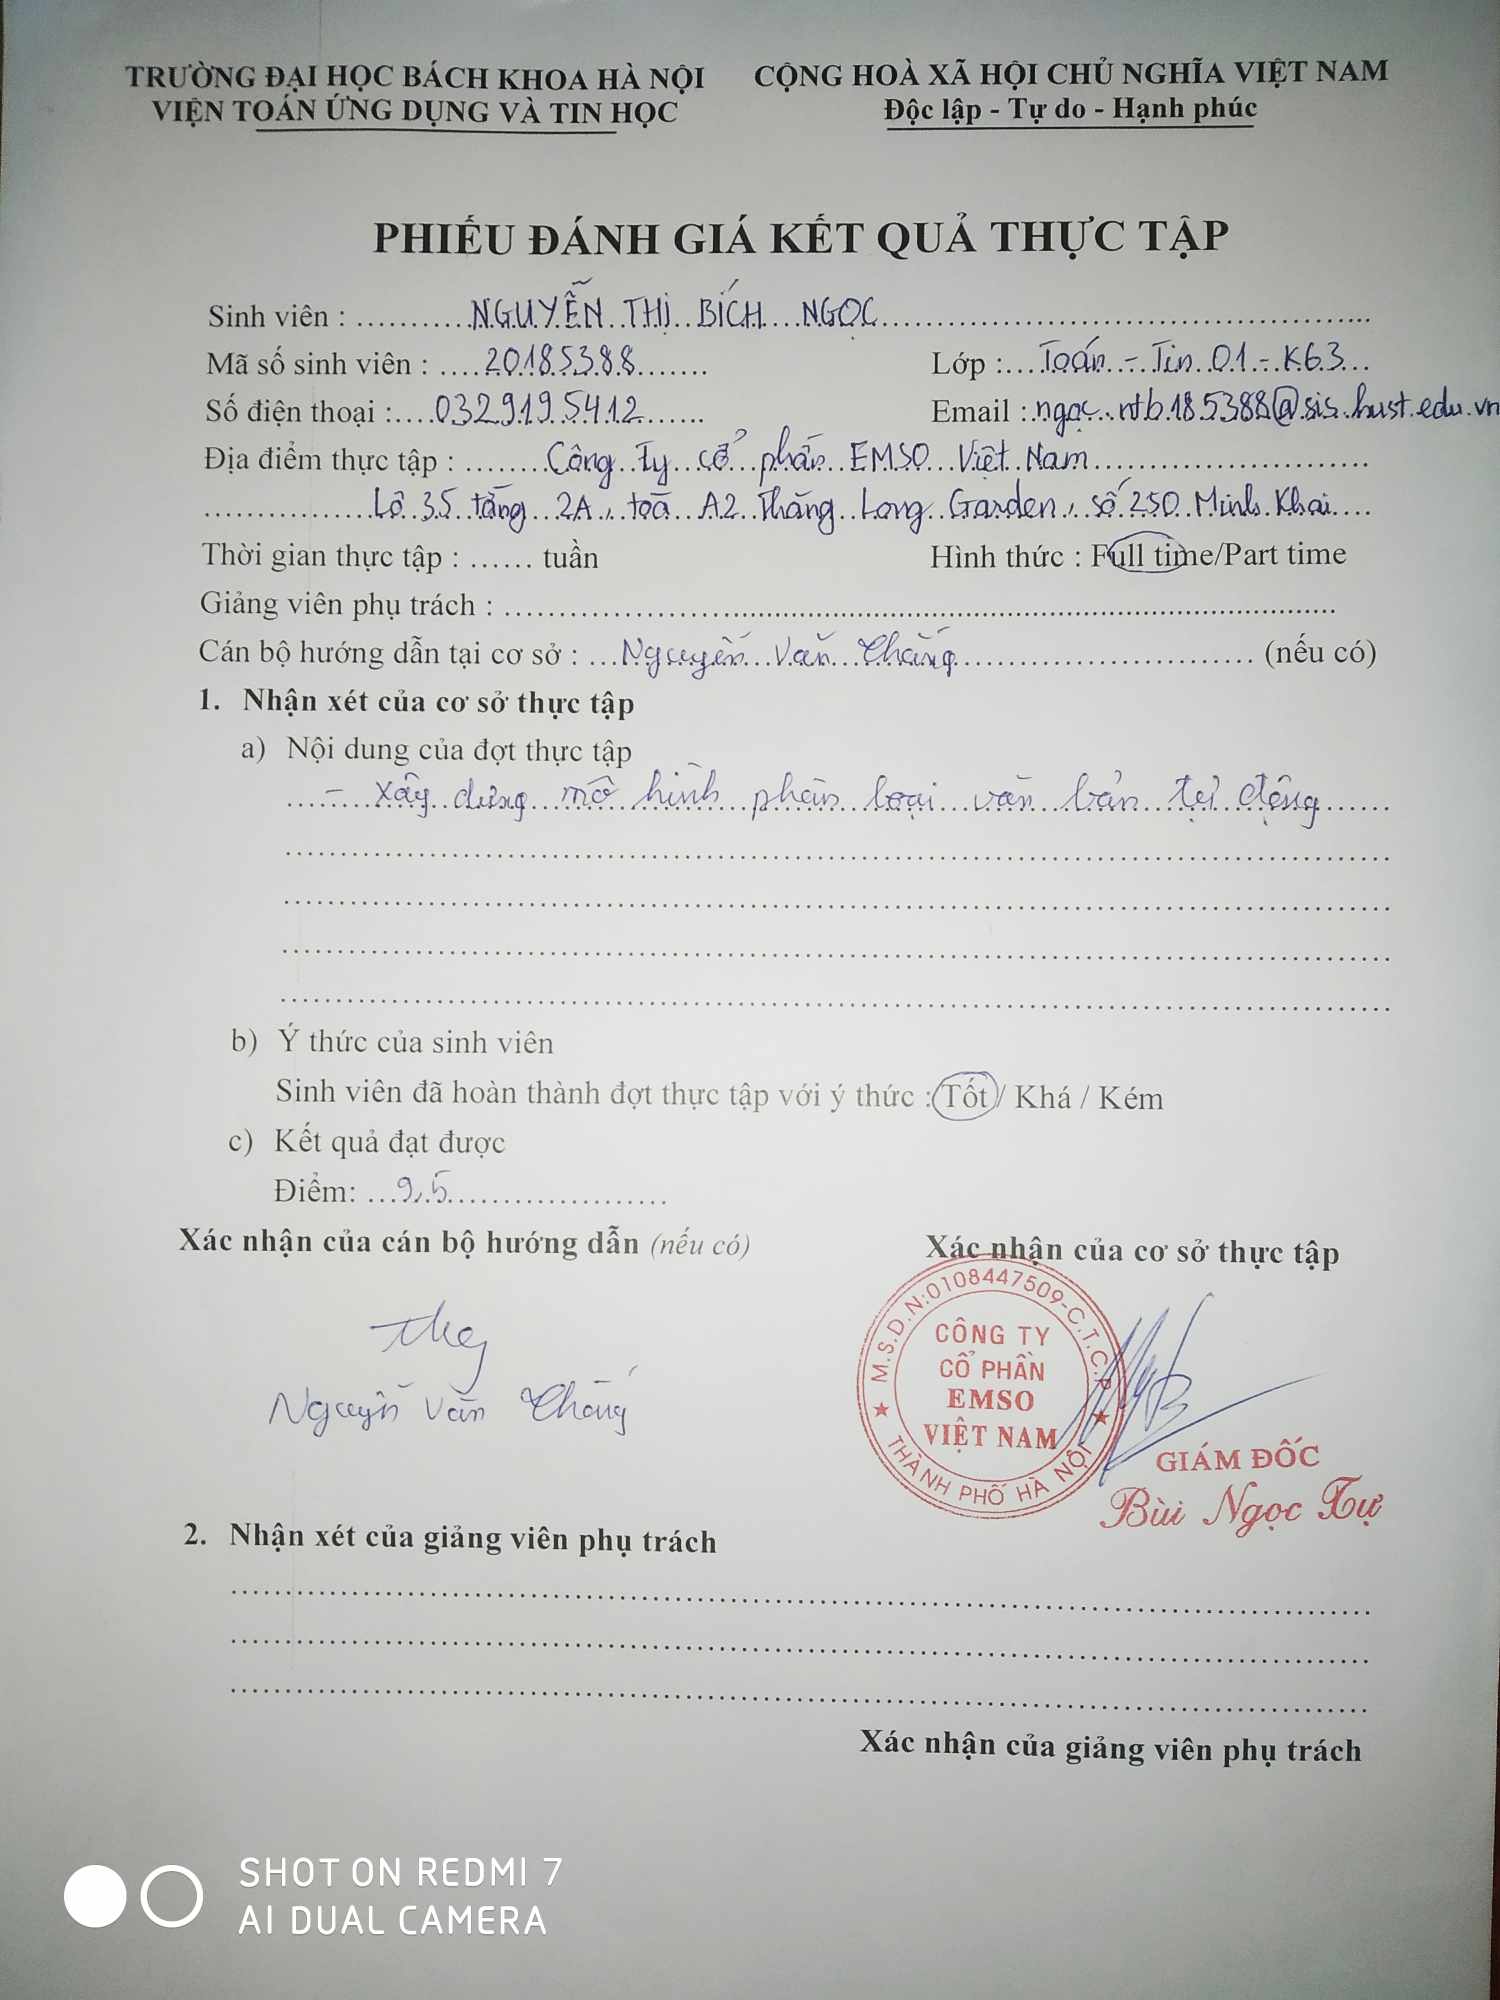 TRƯỜNG ĐẠI HỌC BÁCH KHOA HÀ NỘI
VIỆN TOÁN ỨNG DỤNG VÀ TIN HỌC
CỘNG HOÀ XÃ HỘI CHỦ NGHĨA VIỆT NAM
Độc lập - Tự do - Hạnh phúc
PHIẾU ĐÁNH GIÁ KẾT QUẢ THỰC TẬP
Sinh viên : NGUYỄN THỊ BÍCH NGỌC
Mã số sinh viên : 20185388 Lớp : Toán - Tin 01 - K63
Số điện thoại : 0329195412 Email : ngoc.ntb185388@sis.hust.edu.vn
Địa điểm thực tập : Công ty cổ phần EMSO Việt Nam
Lô 35 tầng 2A, toà A2 Thăng Long Garden, số 250 Minh Khai
Thời gian thực tập : ...... tuần Hình thức : Full time/Part time
Giảng viên phụ trách :
Cán bộ hướng dẫn tại cơ sở : Nguyễn Văn Thắng (nếu có)
1. Nhận xét của cơ sở thực tập
a) Nội dung của đợt thực tập
- Xây dựng mô hình phân loại văn bản tự động
b) Ý thức của sinh viên
Sinh viên đã hoàn thành đợt thực tập với ý thức : Tốt / Khá / Kém
c) Kết quả đạt được
Điểm: 9,5
Xác nhận của cán bộ hướng dẫn (nếu có) Xác nhận của cơ sở thực tập
Nguyễn Văn Thắng
M.S.D.N:0108447509-C.T.C.P
CÔNG TY
CỔ PHẦN
EMSO
VIỆT NAM
THÀNH PHỐ HÀ NỘI
GIÁM ĐỐC
Bùi Ngọc Tự
2. Nhận xét của giảng viên phụ trách
Xác nhận của giảng viên phụ trách
SHOT ON REDMI 7
AI DUAL CAMERA